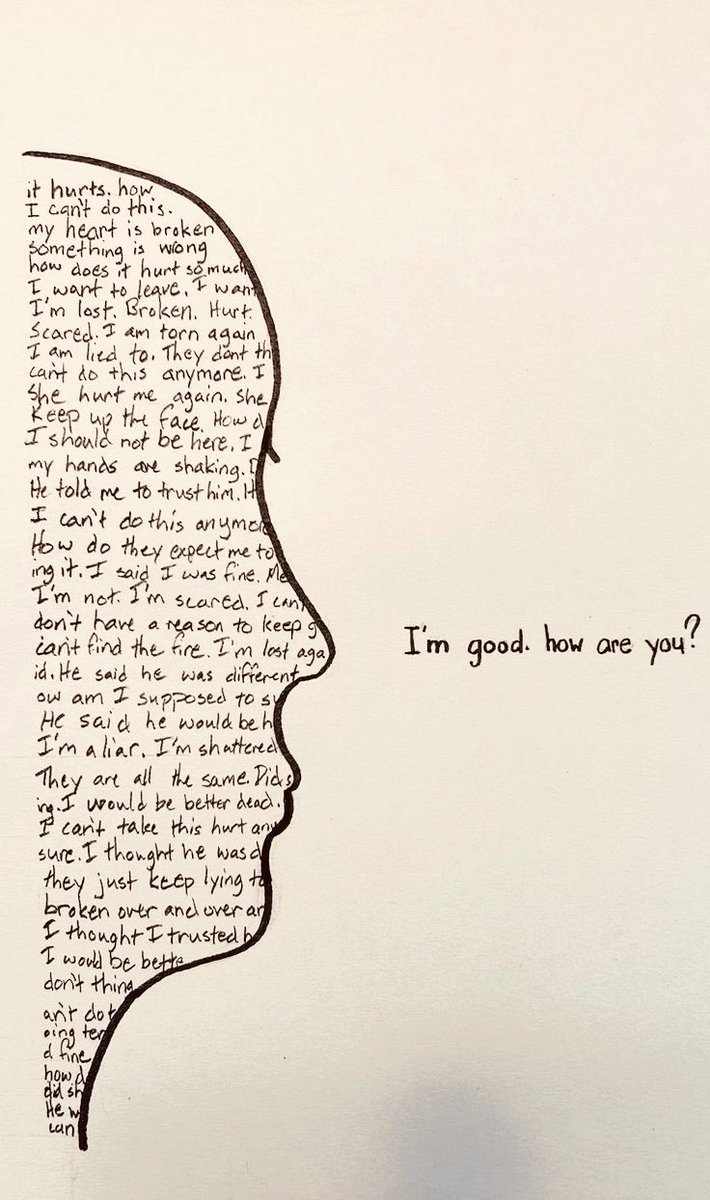 it hurts. how
I can't do this.
my heart is broken
something is wrong
how does it hurt so much
I want to leave. I wan
I'm lost. Broken. Hurt.
Scared. I am torn again
I am lied to. They dont th
can't do this anymore. I
She hurt me again. She
Keep up the face. How d
I should not be here. I
my hands are shaking.
He told me to trust him. It
I can't do this anymor
How do they expect me to
ing it. I said I was fine. Me
I'm not. I'm scared. I can
don't have a reason to keep g
can't find the fire. I'm lost aga
id. He said he was different
ow am I supposed to s
I'm good. how are you?
He said he would be h
I'm a liar. I'm shattered
They are all the same. Did s
ing. I would be better dead.
I can't take this hurt any
sure. I thought he was d
they just keep lying to
broken over and over an
I thought I trusted h
I would be bette
don't thing
an't do t
oing ter
d fine
how d
did sh
He w
can